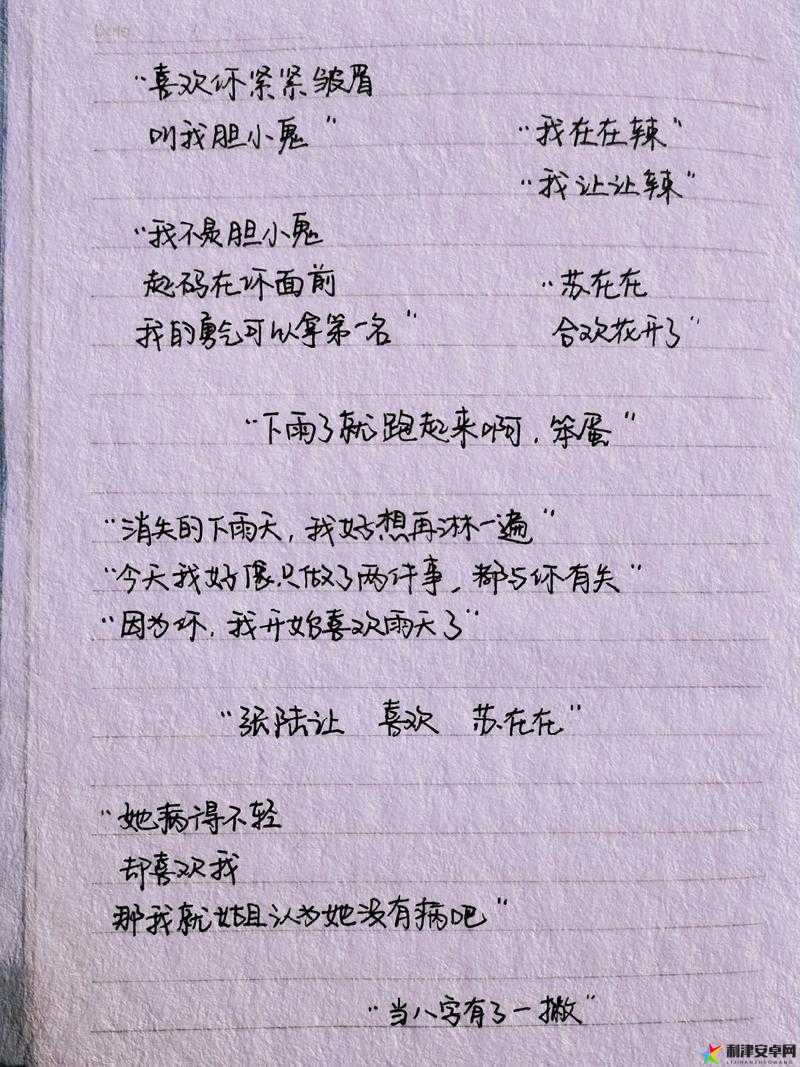 "喜欢你紧紧皱眉
叫我胆小鬼"
"我在在辣"
"我让让辣"
"我不是胆小鬼
起码在你面前
我的勇气可以拿第一名"
"苏在在
合欢花开了"
"下雨了就跑起来啊,笨蛋"
"消失的下雨天,我好想再淋一遍"
"今天我好像只做了两件事,都与你有关"
"因为你,我开始喜欢雨天了"
"张陆让 喜欢 苏在在"
"她病得不轻
却喜欢我
那我就姑且认为她没有病吧"
"当八字有了一撇"
利津安卓网